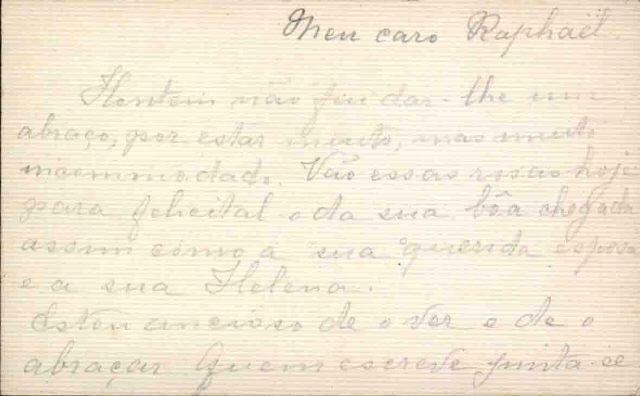 Meu caro Raphaël.
Hontem não fui dar-lhe um
abraço, por estar muito, mas muito
incommodado. Vão essas rosas hoje
para felicital-o da sua bôa chegada
assim como á sua querida esposa
e a sua Helena.
Estou ancioso de o ver e de o
abraçar. Quem escreve junta-se